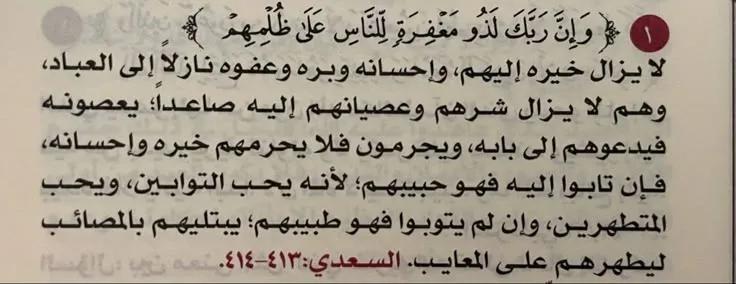 ١ ﴿ وَإِنَّ رَبَّكَ لَذُو مَغْفِرَةٍ لِّلنَّاسِ عَلَىٰ ظُلْمِهِمْ ﴾
لا يزال خيره إليهم، وإحسانه وبره وعفوه نازلاً إلى العباد،
وهم لا يزال شرهم وعصيانهم إليه صاعداً؛ يعصونه
فيدعوهم إلى بابه، ويجرمون فلا يحرمهم خيره وإحسانه،
فإن تابوا إليه فهو حبيبهم؛ لأنه يحب التوابين، ويحب
المتطهرين، وإن لم يتوبوا فهو طبيبهم؛ يبتليهم بالمصائب
ليطهرهم على المعايب. السعدي:٤١٣-٤١٤.